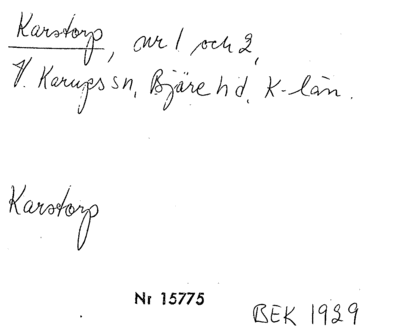 Karstorp, nr 1 och 2,
V. Karups sn, Bjäre hd, K-län.
Karstorp
Nr 15775
BEK 1929